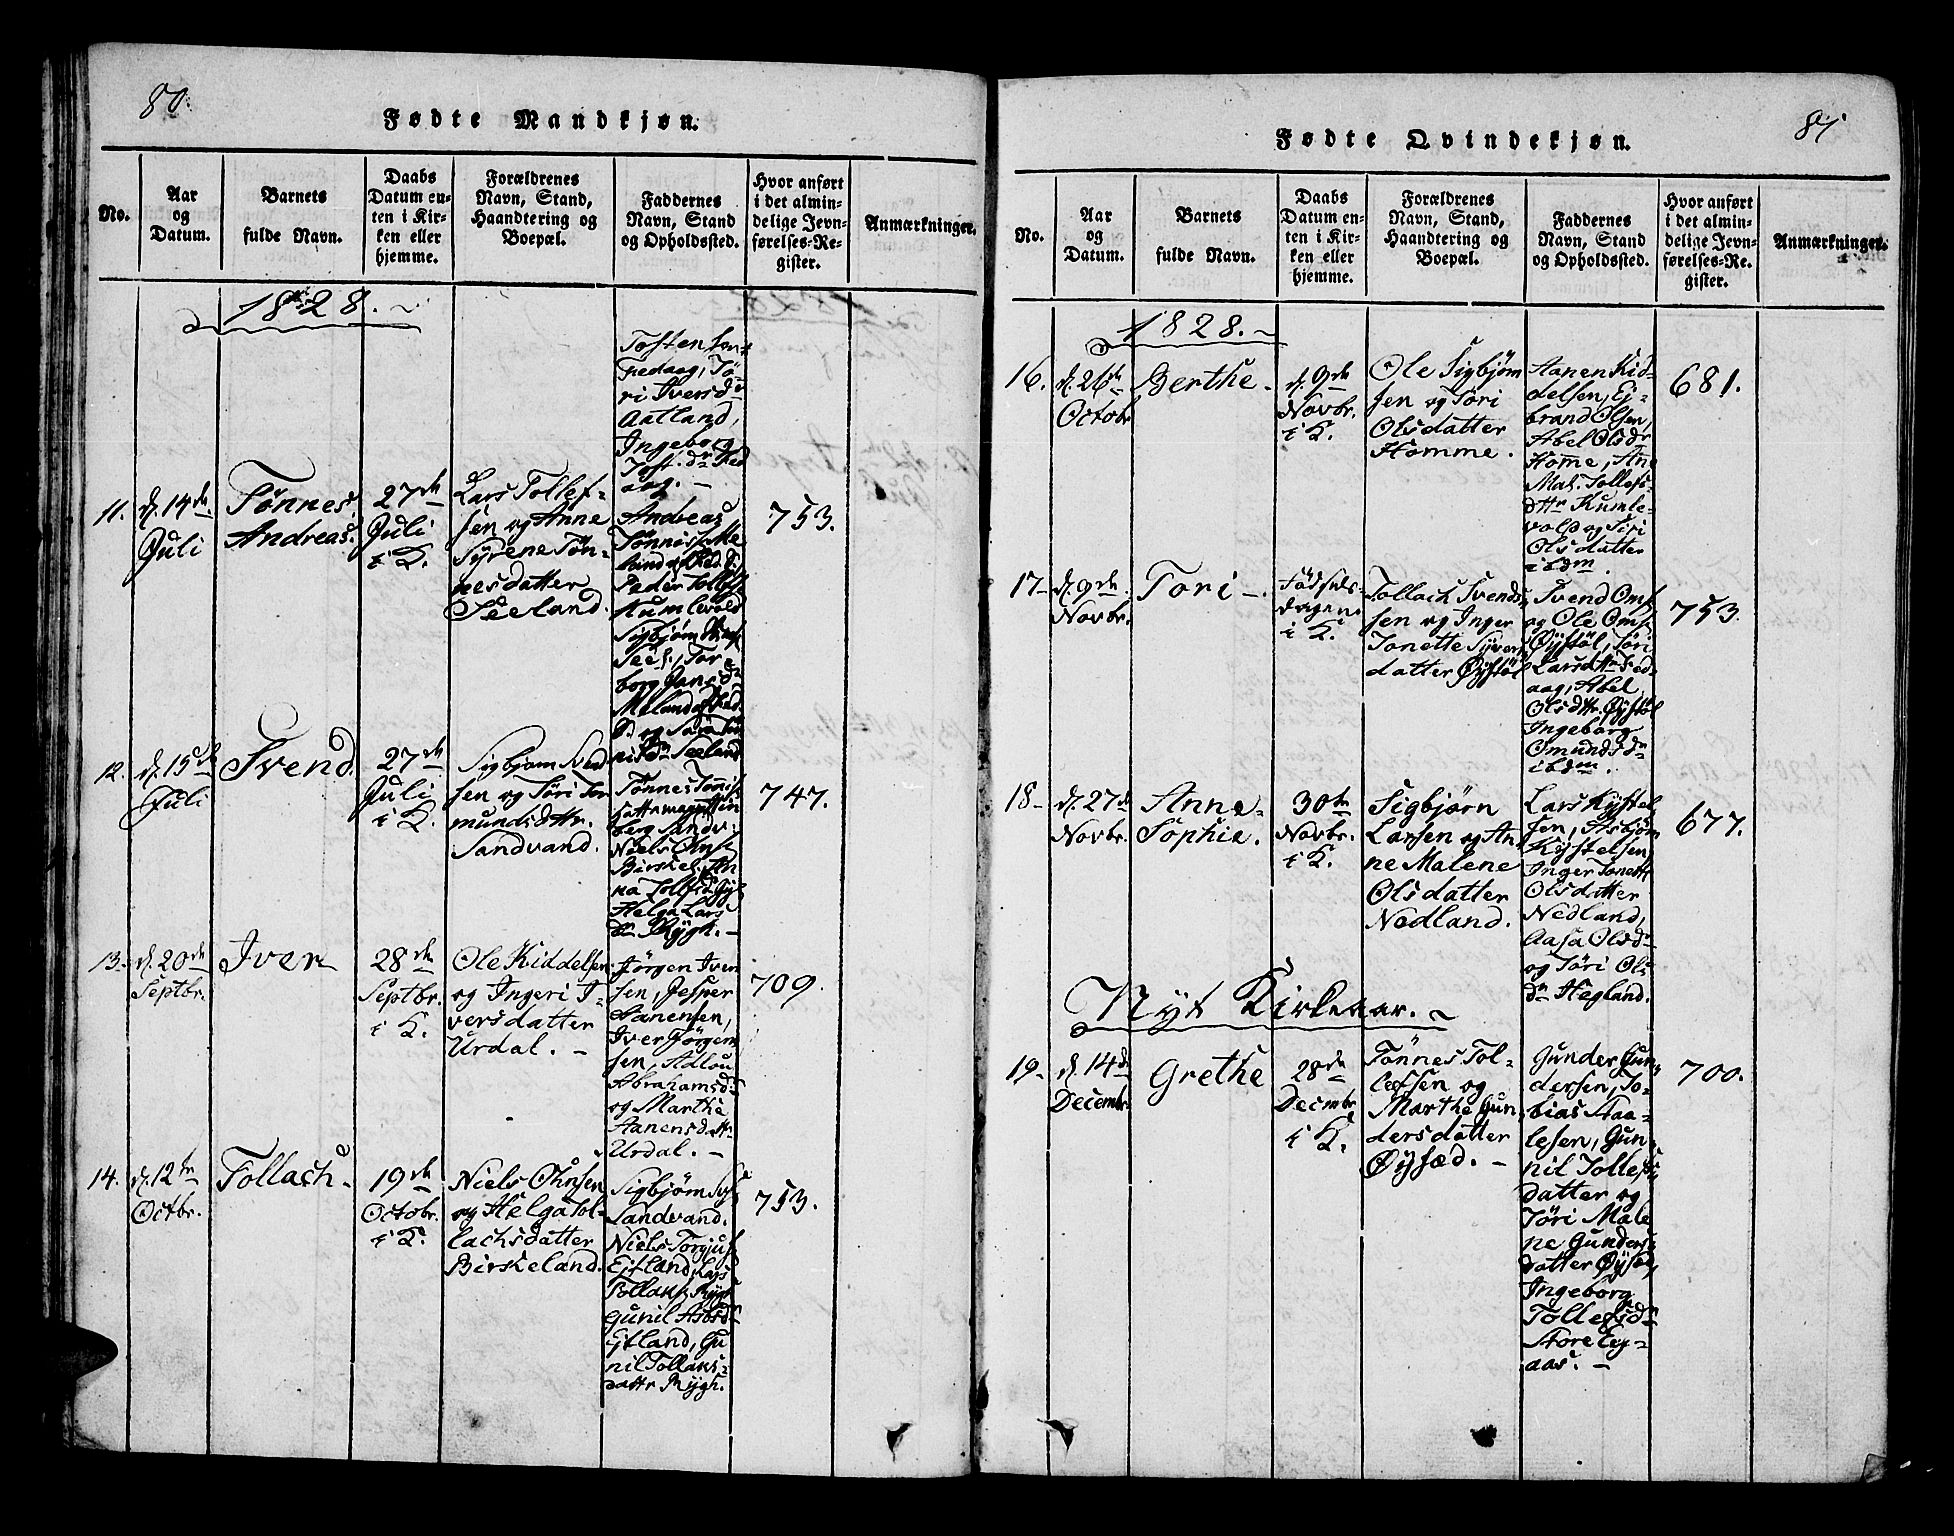 80.
Fødte Mandkjøn.
No.
Aar
og
Datum.
Barnets
fulde Navn.
Daabs
Datum en-
ten i Kir-
ken eller
hjemme.
Forældrenes
Navn, Stand,
Haandtering og
Boepæl.
Faddernes
Navn, Stand
og Opholdssted.
Hvor anført
i det almin-
delige Jevn-
førelses-Re-
gister.
Anmærkninger.
1828.
Tosten
Fedaag, Tö-
ri Iversdr
Aatland,
Ingeborg
Tost.dr Fed
aag.
11.
d. 14de
Juli
Tönnes
Andreas.
27de
Juli
i K.
Lars Tollef-
sen og Anne
Syrene Tön-
nesdatter
Seeland.
Andreas
Peder Tollefs
Kumlevold
Sigbjörn
Seel., Tor-
borg Jansd
og Sara Tön
nisdr Seeland
753.
12.
d. 15de
Juli
Svend.
27de
Juli
i K.
Sigbjörn Svend
sen og Töri Tor
mundsdttr.
Sandvand.
Tönnes Tönnis
Sandv.
Niels Ohns
Birkel. An
na Tollfsd
Helga Lars
dr Rygh.
747.
13.
d. 20de
Septbr.
Iver
28de
Septbr.
i K.
Ole Kiddelsen
og Ingeri I-
versdatter
Urdal.
Jörgen Iver
sen, Jesper
Aanensen,
Iver Jörgen
sen, Adlou
Abrahamsdr
og Marthe
Aanensdattr
Urdal.
709.
14.
d. 12te
Octbr.
Tollach
19de
Octobr.
i K.
Niels Ohnsen
og Helga Tol-
lachsdatter
Birkeland.
Sigbjörn
Sandvand.
Niels Torgjus
Ejtland, Lars
Tollaks Rygh
Gunil Asbsdr
Ejtland, Gu
nil Tollaks-
dattr Rygh.
753.
81
Fødte Qvindekjøn.
No.
Aar
og
Datum.
Barnets
fulde Navn.
Daabs
Datum en-
ten i Kir-
ken eller
hjemme.
Forældrenes
Navn, Stand,
Haandtering og
Boepæl.
Faddernes
Navn, Stand
og Opholdssted.
Hvor anført
i det almin-
delige Jevn-
førelses-Re-
gister.
Anmærkninger.
1828.
16.
d. 26de
Octobr
Berthe.
d. 9de
Novbr.
i K.
Ole Sigbjörn
sen og Töri
Olsdatter
Homme.
Aanen Kid-
delsen, Ej-
brand Olsen,
Abel Olsdr
Home, Ane
Mal. Tollefs
dttr Kumle-
vold og Siri
Olsdatter
ibdm.
681.
17
d. 9de
Novbr.
Tori
Födsels-
dagen
i K.
Tollach Svends-
sen og Inger
Tonette Syver
datter Øystöl
Svend Oms
og Ole Oms
Øystöl, Töri
Larsdttr Fed-
aag, Abel
Olsdttr. Øystöl
Ingeborg
Omundsdr
ibdm.
753.
18
d. 27de
Novbr.
Anne
Sophie.
30te
Novbr.
i K.
Sigbjörn
Larsen og An-
ne Malene
Olsdatter
Nedland.
Lars Kystel
sen, Asbjörn
Kystelsen,
Inger Tonett
Olsdatter
Nedland,
Aasa Olsdr
og Töri Ols
dr Hegland.
677.
Nyt Kirkeaar.
19
d. 14de
Decembr.
Grethe
28de
Decmbr.
i K.
Tönnes Tol-
lefsen og
Marthe Gun
dersdatter
Øysæd.
Gunder Gun-
dersen, To-
bias Staa-
lesen, Gun-
nil Tollefs
datter og
Töri Male
ne Gunders
datter Øysæd,
Ingeborg
Tollefsdr
Store Ey-
aas.
700.